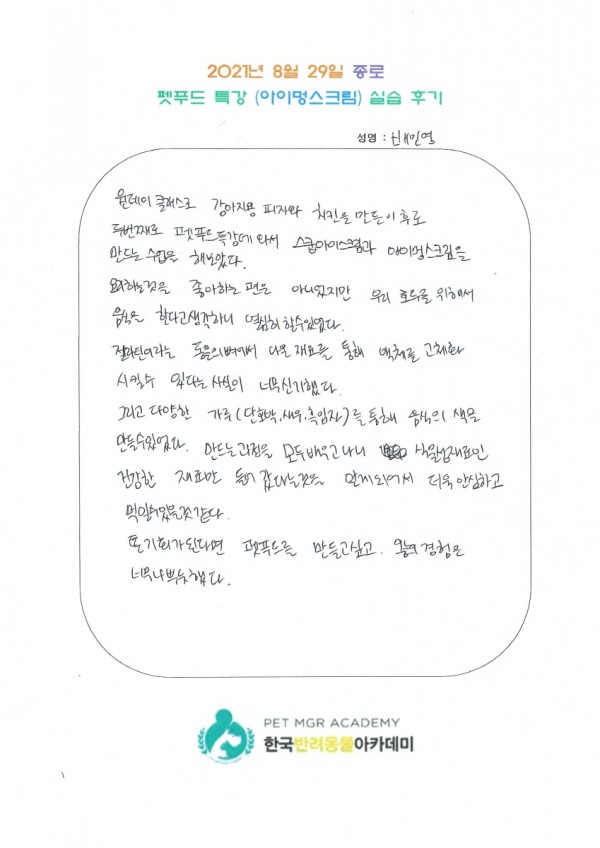 2021년 8월 29일 종로
펫푸드 특강 (아이멍스크림) 실습 후기
성명 :
원데이 클래스로 강아지용 피자와 치킨을 만든 이후로
두번째로 펫푸드특강에 와서 스쿱아이스크림과 아이멍스크림을
만드는 수업을 해보았다.
요리하는것을 좋아하는 편은 아니었지만 우리 호두를 위해서
음식을 한다고 생각하니 열심히 할수있었다.
젤라틴이라는 동물의 뼈에서 나온 재료를 통해 액체를 고체화
시킬수 있다는 사실이 너무 신기했다.
그리고 다양한 가루(단호박,새우,흑임자)를 통해 음식의 색을
만들수있었다. 만드는 과정을 모두 배우고나니 식물성재료인
건강한 재료만 들어 갔다는것을 알게되어서 더욱 안심하고
먹일수있을것 같다.
또 기회가 된다면 펫푸드를 만들고싶고. 오늘의 경험은
너무나 뿌듯했다.
PET MGR ACADEMY
한국반려동물아카데미